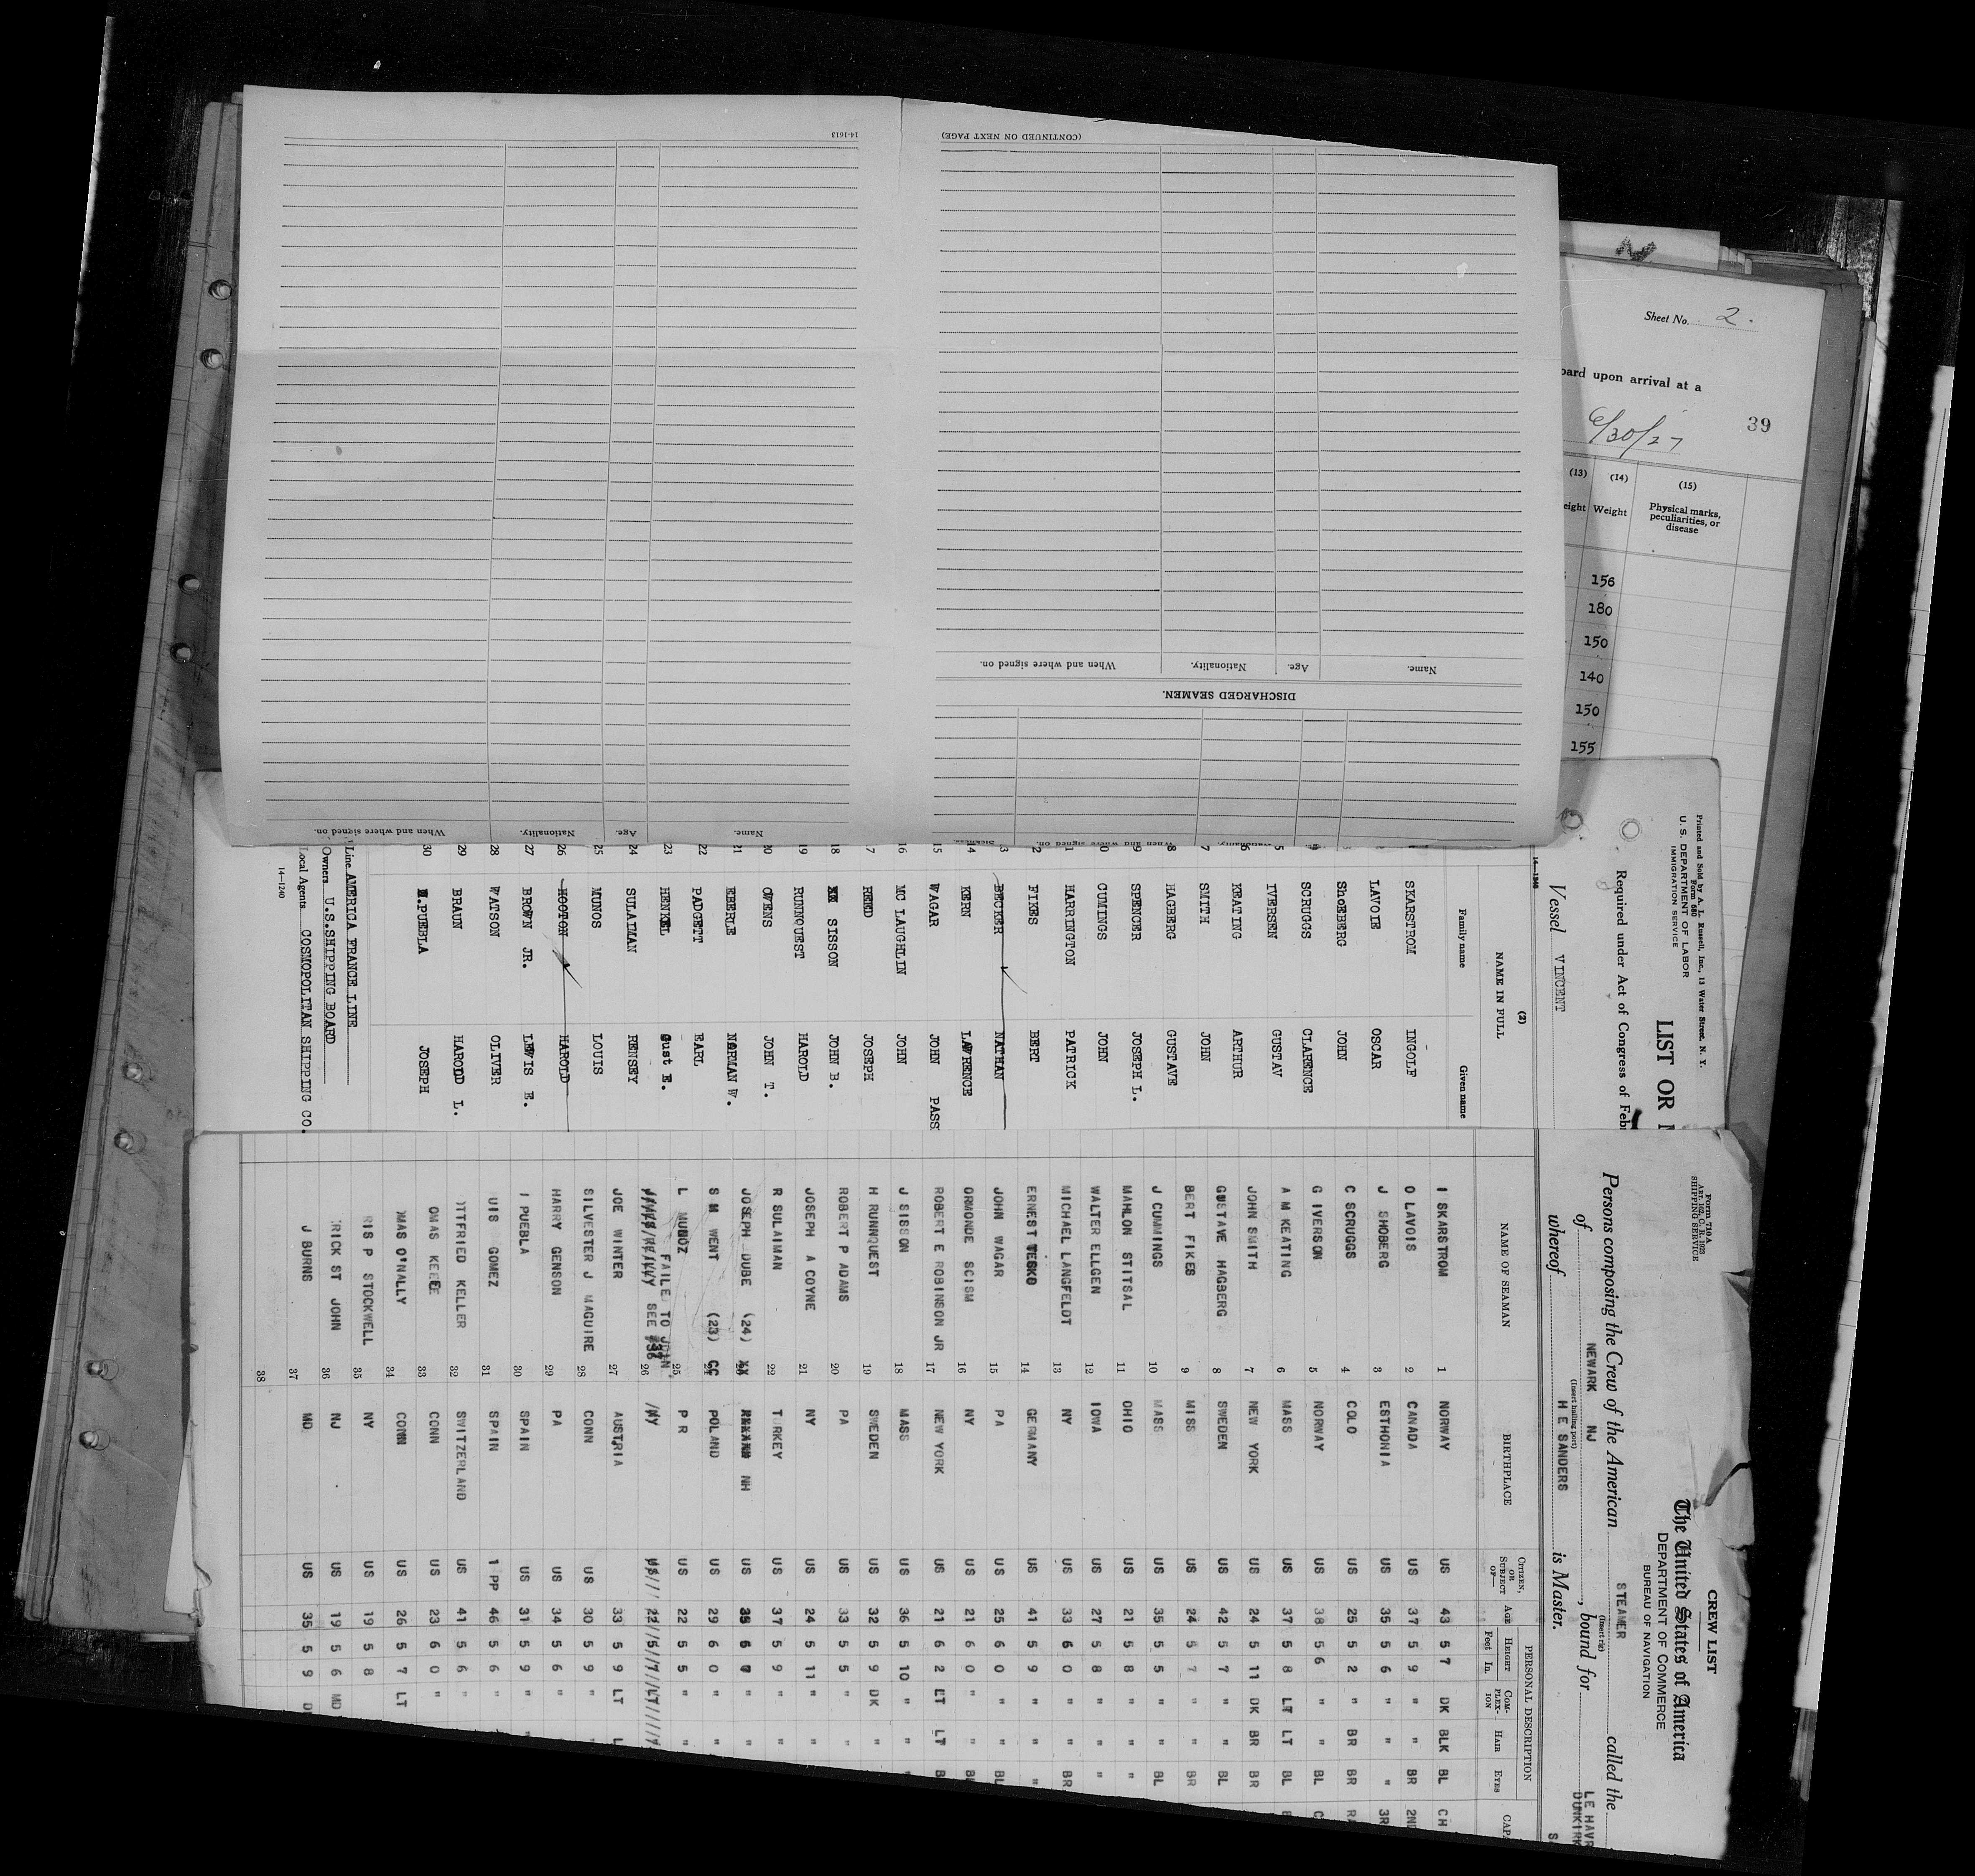 14-1613
(CONTINUED ON NEXT PAGE)
Name. Age. Nationality. When and where signed on.
DISCHARGED SEAMEN.
Name. Age. Nationality. When and where signed on.
Sheet No. 2.
oard upon arrival at a
6/30/27
39
(13) (14) (15)
eight Weight Physical marks, peculiarities, or disease
156
180
150
140
150
155
Printed and Sold by A. L. Russell, Inc., 13 Water Street, N. Y.
Form 680
U. S. DEPARTMENT OF LABOR
IMMIGRATION SERVICE
LIST OR
Required under Act of Congress of Feb
Vessel VINCENT
(2)
NAME IN FULL
Family name Given name
SKARSTROM INGOLF
LAVOIE OSCAR
ShoEBERG JOHN
SCRUGGS CLARENCE
5 IVERSEN GUSTAV
6 KEATING ARTHUR
7 SMITH JOHN
8 HAGBERG GUSTAVE
9 SPENCER JOSEPH L.
10 CUMINGS JOHN
11 HARRINGTON PATRICK
12 FIKES BERT
13 BECKER NATHAN
14 KERN LAWRENCE
15 WAGAR JOHN PASS
16 MC LAUGHLIN JOHN
17 REED JOSEPH
18 SISSON JOHN B.
19 RUNNQUEST HAROLD
20 OWENS JOHN T.
21 EBERLE NORMAN W.
22 PADGETT EARL
23 HENKEL Gust E.
24 SULAIMAN RENSEY
25 MUNOS LOUIS
26 HOOTON HAROLD
27 BROWN JR. LEWIS E.
28 WATSON OLIVER
29 BRAUN HAROLD L.
30 M.PUEBLA JOSEPH
Line AMERICA FRANCE LINE
Owners U.S.SHIPPING BOARD
Local Agents COSMOPOLITAN SHIPPING CO.
14-1240
Form 710 A
ART. 192, C. R. 1923
SHIPPING SERVICE
CREW LIST
The United States of America
DEPARTMENT OF COMMERCE
BUREAU OF NAVIGATION
Persons composing the Crew of the American STEAMER called the
(Insert rig)
of NEWARK NJ, bound for LE HAVR
(Insert hailing port) DUNKIRK
whereof H E SANDERS is Master.
NAME OF SEAMAN BIRTHPLACE CITIZEN, OR SUBJECT OF— AGE PERSONAL DESCRIPTION HEIGHT Feet In. COMPLEXION HAIR EYES CAPA
I SKARSTROM 1 NORWAY US 43 5 7 DK BLK BL CH
O LAVOIS 2 CANADA US 37 5 9 " " BR 2N
J SHOBERG 3 ESTHONIA US 35 5 6 " " " 3R
C SCRUGGS 4 COLO US 25 5 2 " BR BR RA
G IVERSON 5 NORWAY US 38 5 6 " " BL C
A M KEATING 6 MASS US 37 5 8 LT LT BL
JOHN SMITH 7 NEW YORK US 24 5 11 DK BR BR
GUSTAVE HAGBERG 8 SWEDEN US 42 5 7 " " BL
BERT FIKES 9 MISS US 24 5 7 " " BR
J CUMMINGS 10 MASS US 35 5 5 " " BL
MAHLON STITSAL 11 OHIO US 21 5 8 " " "
WALTER ELLGEN 12 IOWA US 27 5 8 " " "
MICHAEL LANGFELDT 13 NY US 33 6 0 " " BR
ERNEST TESKO 14 GERMANY US 41 5 9 " " "
JOHN WAGAR 15 PA US 25 6 0 " " BL
ORMONDE SCISM 16 NY US 21 6 0 " "
ROBERT E ROBINSON JR 17 NEW YORK US 21 6 2 LT LT
J SISSON 18 MASS US 36 5 10 " " "
H RUNNQUEST 19 SWEDEN US 32 5 9 DK "
ROBERT P ADAMS 20 PA US 33 5 5 " "
JOSEPH A COYNE 21 NY US 24 5 11 " "
R SULAIMAN 22 TURKEY US 37 5 9 " "
JOSEPH DUBE (24) NH US 6 " "
S M WENT (23) POLAND US 29 6 0 " "
L MUNOZ 25 P R US 22 5 5 " "
FAILED TO JOIN
SEE 26 NY US 22 5 7 LT
JOE WINTER 27 AUSTRIA 33 5 9 LT L
SILVESTER J MAGUIRE 28 CONN US 30 5 9 "
HARRY GENSON 29 PA US 34 5 6 "
PUEBLA 30 SPAIN US 31 5 9 "
UIS GOMEZ 31 SPAIN 1 PP 46 5 6 "
OTTFRIED KELLER 32 SWITZERLAND US 41 5 6 "
OMAS KEEFE 33 CONN US 23 6 0 "
OMAS O'NALLY 34 CONN US 26 5 7 LT
RIS P STOCKWELL 35 NY US 19 5 8
RICK ST JOHN 36 NJ US 19 5 6 MD
J BURNS 37 MD US 35 5 9 D
38